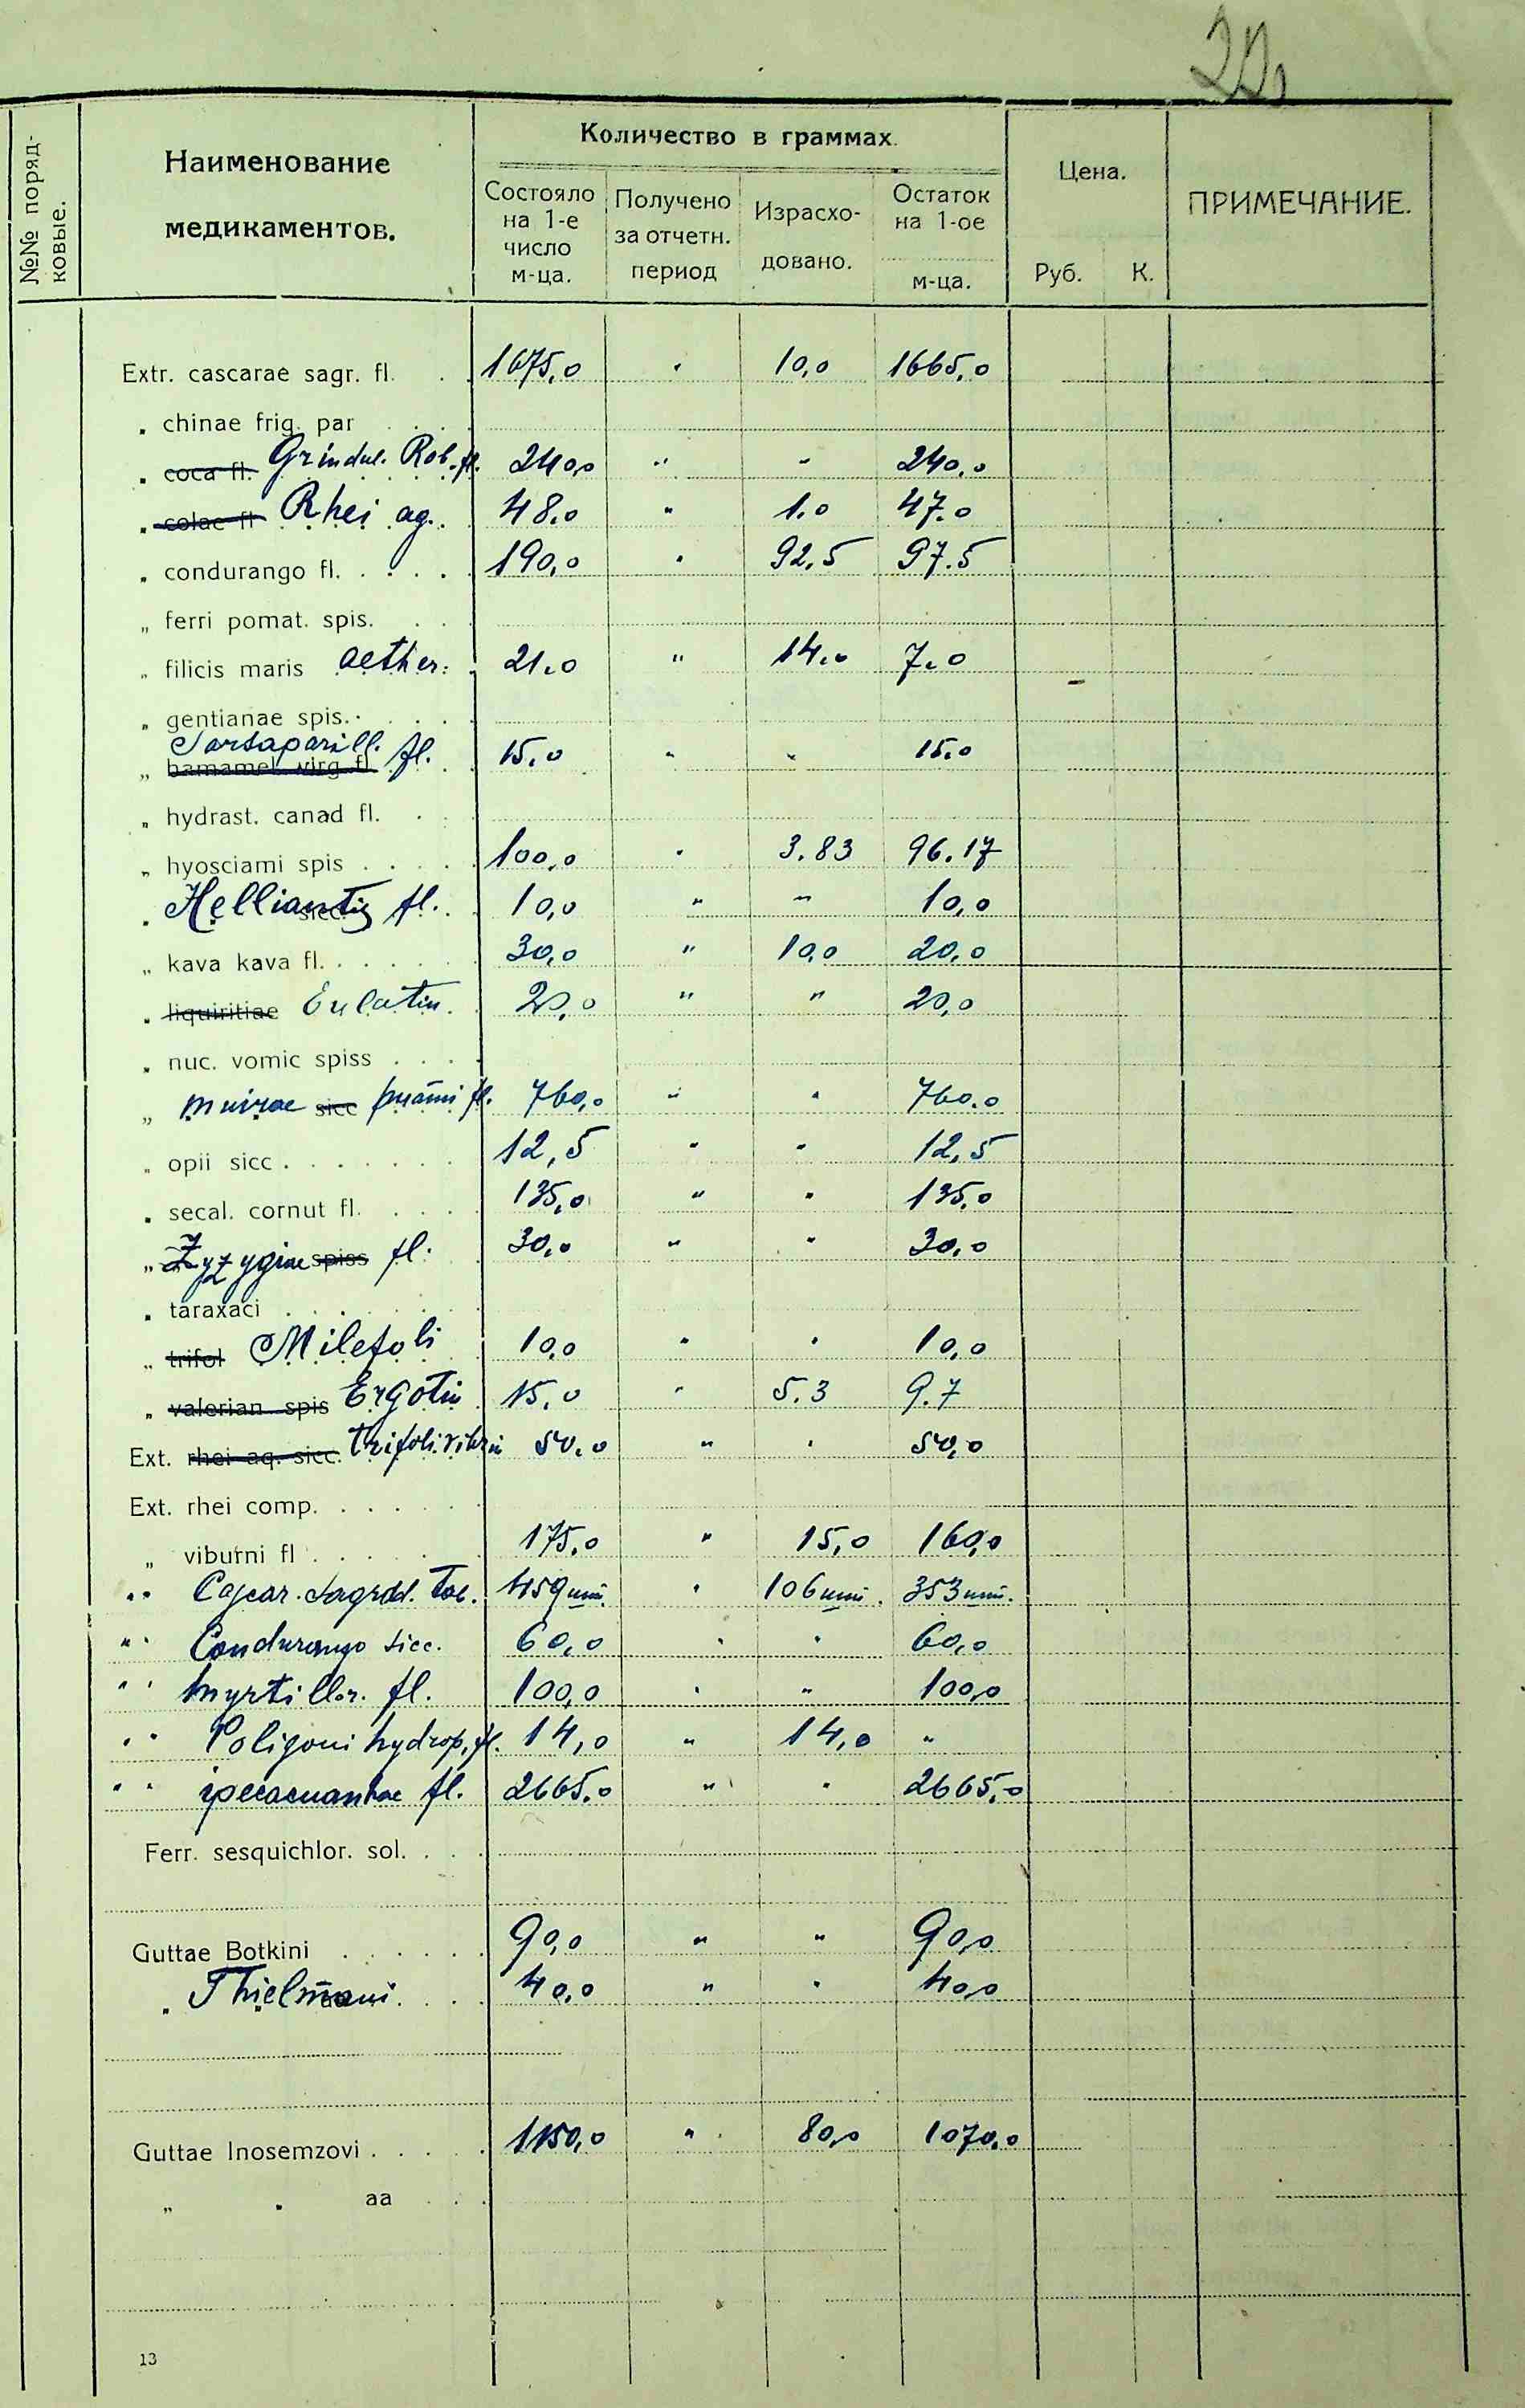 20
№№ поряд-
ковые.
Наименование
медикаментов.
Количество в граммах.
Состояло
на 1-е
число
м-ца.
Получено
за отчетн.
период
Израсхо-
довано.
Остаток
на 1-ое
м-ца.
Цена.
Руб. К.
ПРИМЕЧАНИЕ.
Extr. cascarae sagr. fl. . . 1675,0 " 10,0 1665,0
„ chinae frig. par . . . .
„ coca fl. Grindel. Rob. fl. 240,0 " " 240,0
„ colae fl Rhei aq. . 48,0 " 1.0 47.0
„ condurango fl. . . . . 190,0 " 92,5 97.5
„ ferri pomat. spis. . .
„ filicis maris aether. 21.0 " 14.0 7.0
„ gentianae spis. . . . .
Sarsaparill.
„ hamamel. virg fl fl. 15.0 " " 15.0
„ hydrast. canad fl. . .
„ hyosciami spis . . . . 100,0 " 3.83 96.17
„ Helliantis fl. . 10,0 " " 10,0
„ kava kava fl. . . . . . 30,0 " 10,0 20,0
„ liquiritiae Eulatin. 20,0 " " 20,0
„ nuc. vomic spiss . . . .
„ muirae sicc puami fl. 760,0 " " 760.0
„ opii sicc . . . . . . . 12,5 " " 12,5
„ secal. cornut fl. . . . 135,0 " " 135,0
„ Zyzygiae spiss fl. 30,0 " " 30,0
„ taraxaci . . . . . .
„ trifol Milefoli 10,0 " " 10,0
„ valerian spis Ergotin 15,0 " 5.3 9.7
Ext. rhei aq. sicc. trifoli. fibrin 50.0 " " 50,0
Ext. rhei comp. . . . . .
„ viburni fl . . . . . 175,0 " 15,0 160,0
" " Cascar. Sagrad. Tab. 459 шт. " 106 шт. 353 шт.
" " Condurango sicc. 60,0 " " 60,0
" " Myrtillor. fl. 100,0 " " 100,0
" " Poligoni hydrop. fl. 14,0 " 14,0 "
" " ipecacuanhae fl. 2665.0 " " 2665,0
Ferr. sesquichlor. sol. . . .
Guttae Botkini . . . . . . 90,0 " " 90,0
„ Thielmani. . . 40,0 " " 40,0
Guttae Inosemzovi . . . . . 1150,0 " 80,0 1070,0
„ „ aa . . .
13